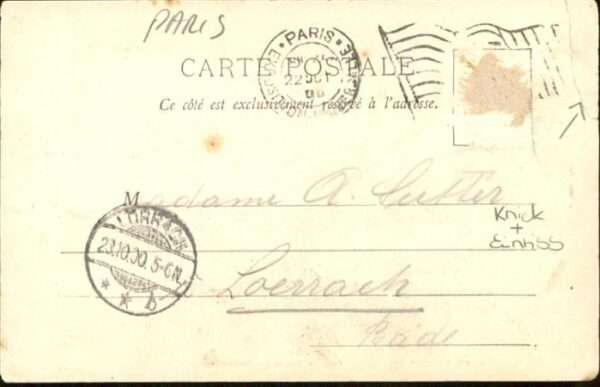 PARIS
PARIS
EXPOSITION
22 OCT
00
CARTE POSTALE
Ce côté est exclusivement réservé à l'adresse.
Madame A. Sutter
Knick
+
Einriss
LÖRRACH
23.10.00.5-6N.
* * b
Loerrach
Bade